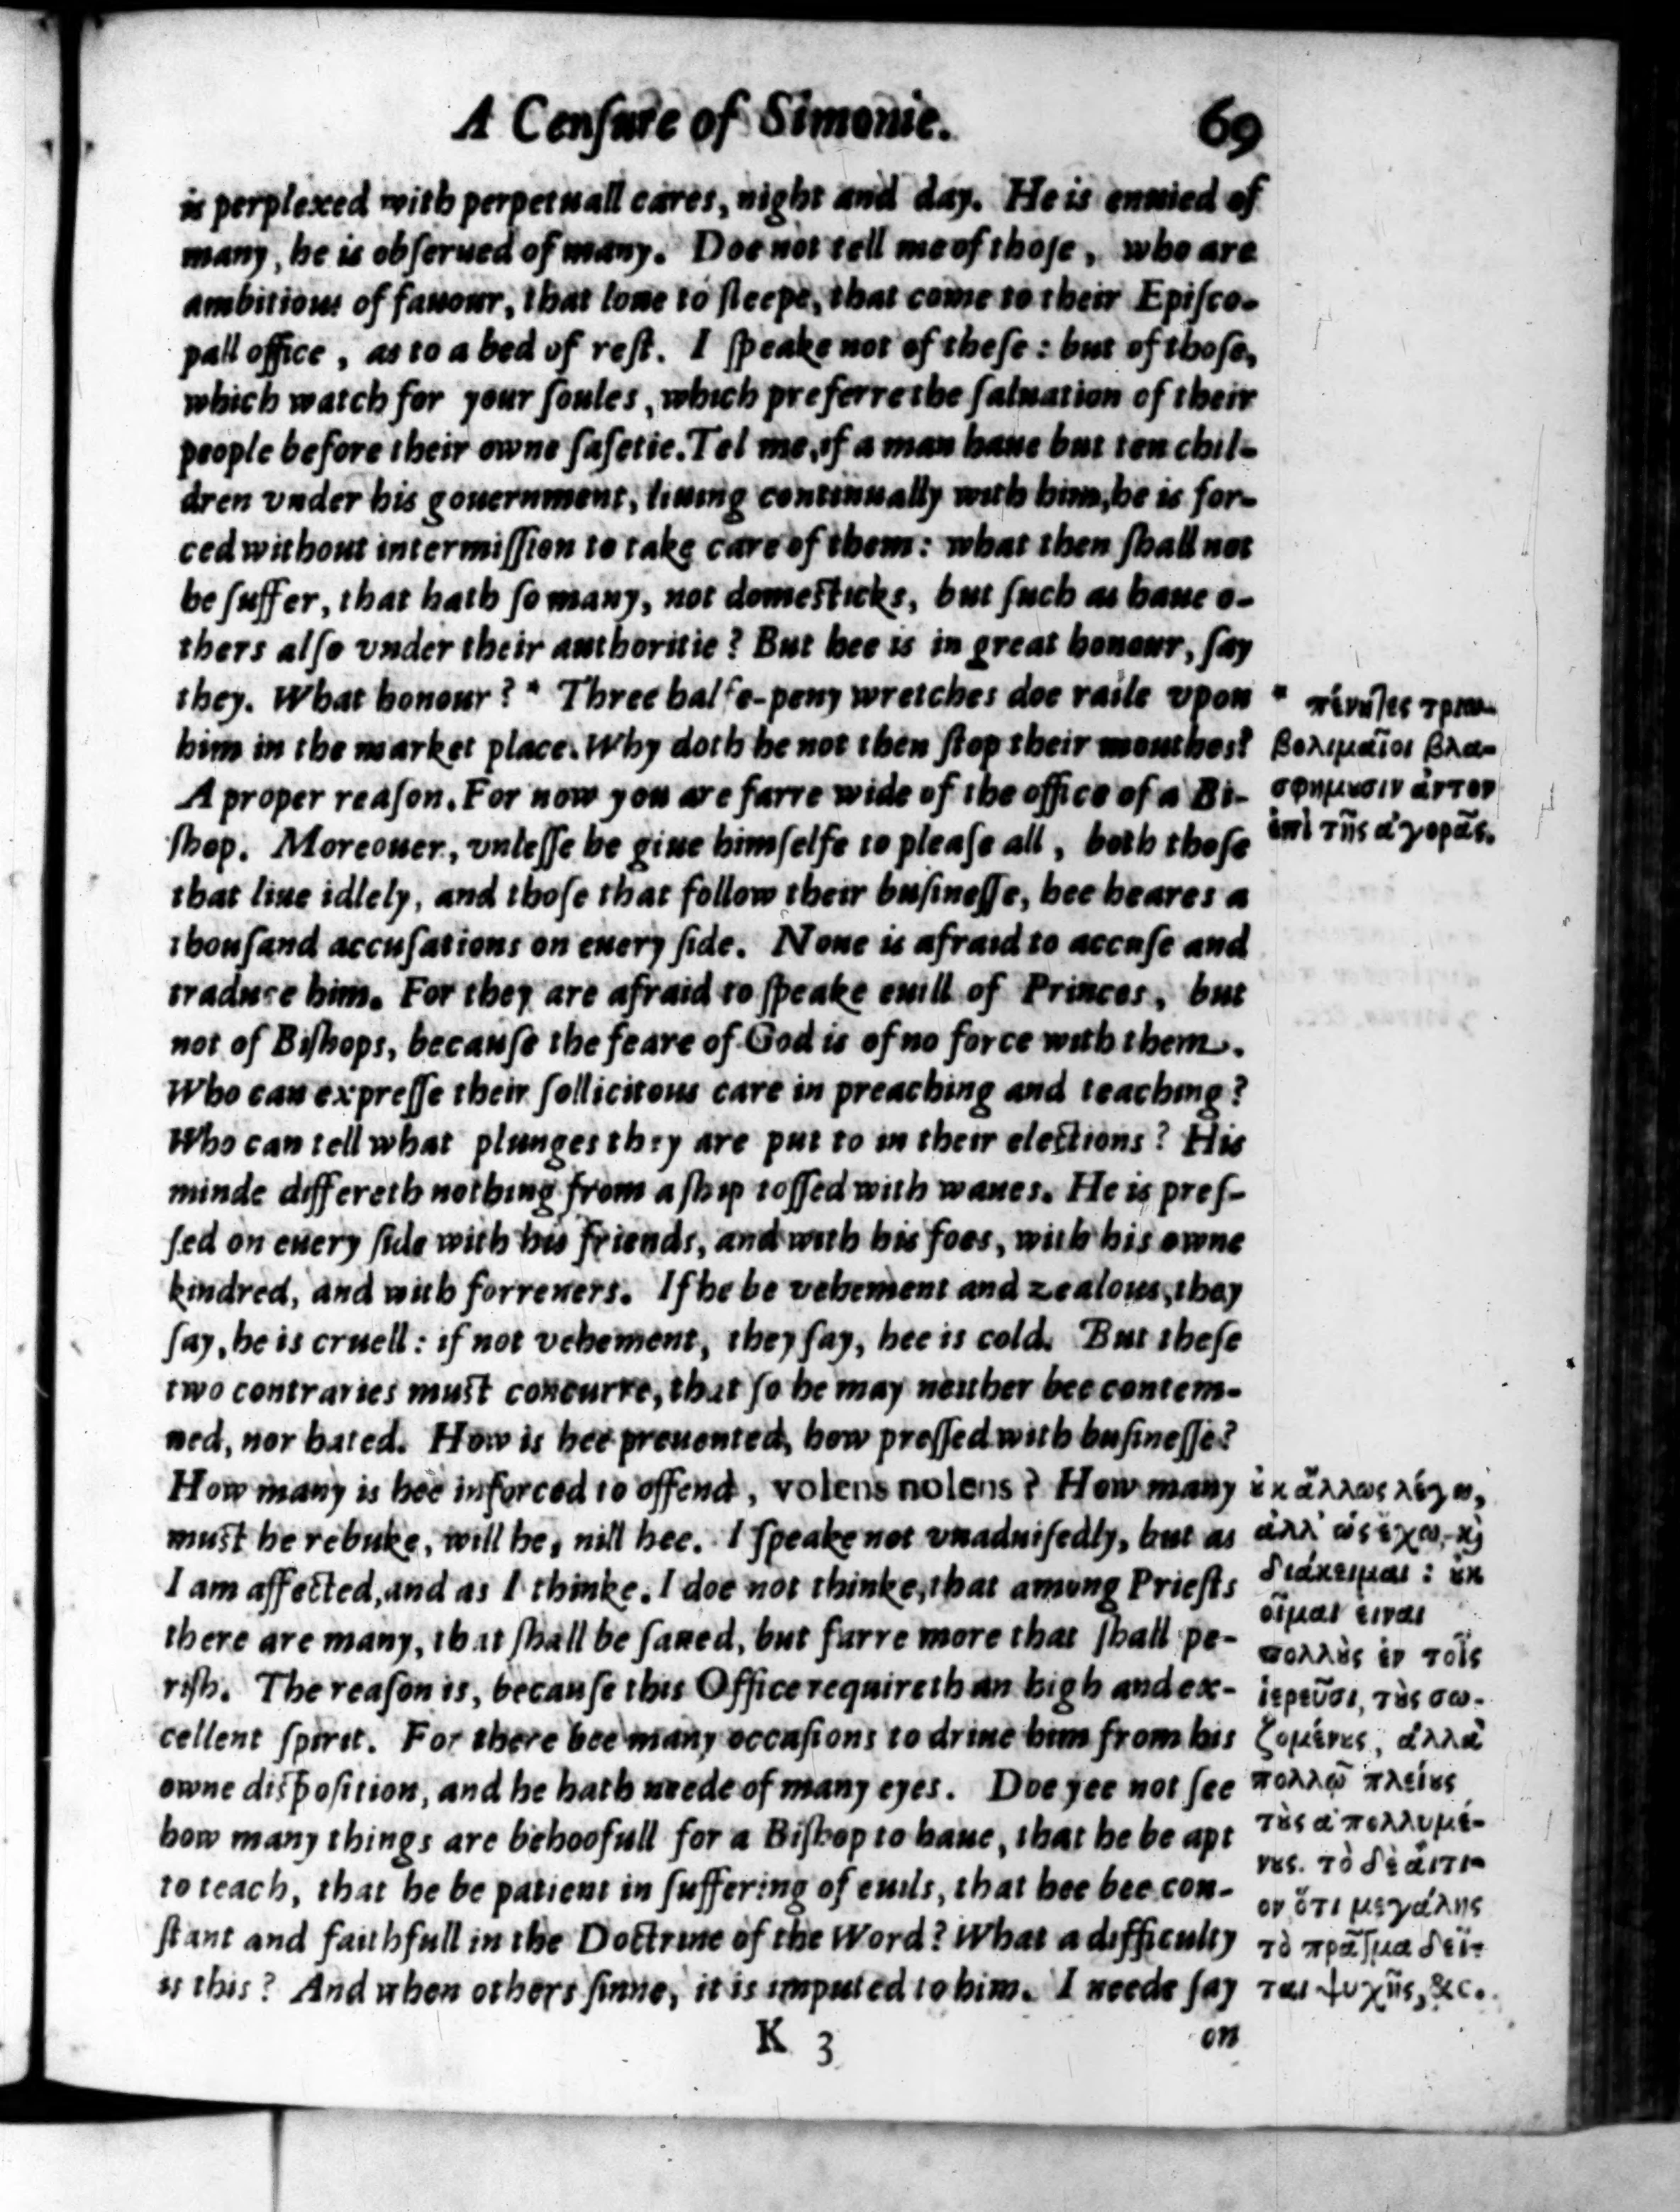 A Cenſure of Simonie. 69
is perplexed with perpetuall cares, night and day. He is enuied of
many, he is obſerued of many. Doe not tell me of thoſe, who are
ambitious of fauour, that loue to ſleepe, that come to their Epiſco-
pall office, as to a bed of reſt. I ſpeake not of theſe: but of thoſe,
which watch for your ſoules, which preferre the ſaluation of their
people before their owne ſafetie. Tel me, if a man haue but ten chil-
dren vnder his gouernment, liuing continually with him, he is for-
ced without intermiſſion to take care of them: what then ſhall not
he ſuffer, that hath ſo many, not domeſticks, but ſuch as haue o-
thers alſo vnder their authoritie? But hee is in great honour, ſay
they. What honour? * Three halfe-peny wretches doe raile vpon
him in the market place. Why doth he not then ſtop their mouthes?
A proper reaſon. For now you are farre wide of the office of a Bi-
ſhop. Moreouer, vnleſſe he giue himſelfe to pleaſe all, both thoſe
that liue idlely, and thoſe that follow their buſineſſe, hee heares a
thouſand accuſations on euery ſide. None is afraid to accuſe and
traduce him. For they are afraid to ſpeake euill of Princes, but
not of Biſhops, becauſe the feare of God is of no force with them.
Who can expreſſe their ſollicitous care in preaching and teaching?
Who can tell what plunges they are put to in their elections? His
minde differeth nothing from a ſhip toſſed with waues. He is preſ-
ſed on euery ſide with his friends, and with his foes, with his owne
kindred, and with forreners. If he be vehement and zealous, they
ſay, he is cruell: if not vehement, they ſay, hee is cold. But theſe
two contraries muſt concurre, that ſo he may neither bee contem-
ned, nor hated. How is hee preuented, how preſſed with buſineſſe?
How many is hee inforced to offend, volens nolens? How many
muſt he rebuke, will he, nill hee. I ſpeake not vnaduiſedly, but as
I am affected, and as I thinke. I doe not thinke, that among Prieſts
there are many, that ſhall be ſaued, but farre more that ſhall pe-
riſh. The reaſon is, becauſe this Office requireth an high and ex-
cellent ſpirit. For there bee many occaſions to driue him from his
owne diſpoſition, and he hath neede of many eyes. Doe yee not ſee
how many things are behoofull for a Biſhop to haue, that he be apt
to teach, that he be patient in ſuffering of euils, that hee bee con-
ſtant and faithfull in the Doctrine of the Word? What a difficulty
is this? And when others ſinne, it is imputed to him. I neede ſay
K 3 on
* πένηϊες τριω-
βολιμαῖοι βλα-
σφημȣσιν ἀυτον
ἐπὶ τῆς ἀγορᾶς.
ȣ̓κ ἄλλως λέγω,
ἀλλ' ὡς ἔχω, ϗ̀
διάκειμαι: ȣ̓κ
οἶμαι ειναι
πολλȣ̀ς ἐν τοῖς
ἱερεῦσι, τȣ̀ς σω-
ζομένȣς, ἀλλὰ
πολλῷ πλείȣς
τȣ̀ς ἀπολλυμέ-
νȣς. τὸ δὲ ἄιτι-
ον ὅτι μεγάλης
τὸ πρᾶγμα δεῖ-
ται ψυχῆς, &c.